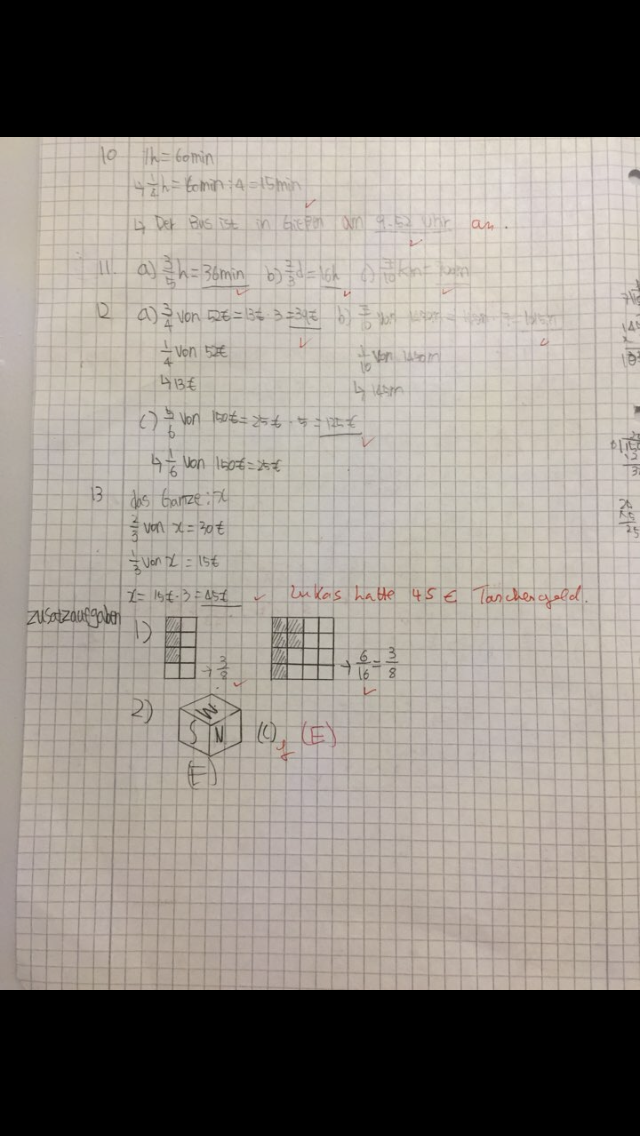 10 1h = 60min
↳ 1/2 h = 60min : 4 = 15min
↳ Der Bus ist in an 9.52 Uhr an.
11. a) 3/5 h = 36min b) 2/3 d = 16h c)
12 a) 3/4 von 52€ = 13€ · 3 = 39€ b)
1/4 von 52€ 1/10 von
↳ 13€ ↳ 145m
c) 5/6 von 150€ = 25€ · 5 = 125€
↳ 1/6 von 150€ = 25€
13 das Ganze: x
2/3 von x = 30€
1/3 von x = 15€
x = 15€ · 3 = 45€ Lukas hatte 45 € Taschengeld.
Zusatzaufgaben
1) → 3/8 → 6/16 = 3/8
2) W S N (C) f (E)
(E)